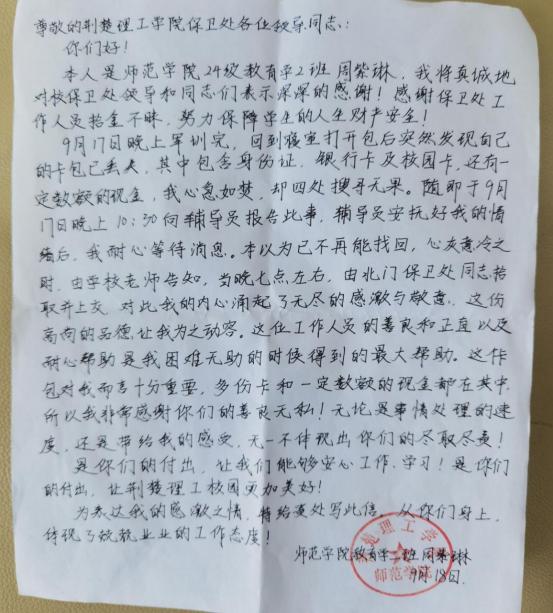 尊敬的荆楚理工学院保卫处各位领导同志：
你们好！
本人是师范学院24级教育学2班周紫琳，我将真诚地
对校保卫处领导和同志们表示深深的感谢！感谢保卫处工
作人员拾金不昧，努力保障学生的人生财产安全！
9月17日晚上军训完，回到寝室打开包后突然发现自己
的卡包已丢失，其中包含身份证、银行卡及校园卡，还有一
定数额的现金，我心急如焚，却四处搜寻无果。随即于9月
17日晚上10:30向辅导员报告此事，辅导员安抚好我的情
绪后，我耐心等待消息。本以为已不再能找回，心灰意冷之
时，由学校老师告知，当晚七点左右，由北门保卫处同志拾
取并上交，对此我的内心涌起了无尽的感激与敬意，这份
高尚的品德让我为之动容。这位工作人员的善良和正直以及
耐心帮助是我困难无助的时候得到的最大帮助。这件卡
包对我而言十分重要，多份卡和一定数额的现金都在其中，
所以我非常感谢你们的善良无私！无论是事情处理的速
度，还是带给我的感受，无一不体现出你们的尽职尽责！
是你们的付出，让我们能够安心工作、学习！是你们
的付出，让荆楚理工校园更加美好！
为表达我的感激之情，特给贵处写此信，从你们身上，
体现了兢兢业业的工作态度！
师范学院教育学二班周紫琳
9月18日
荆楚理工学院
师范学院